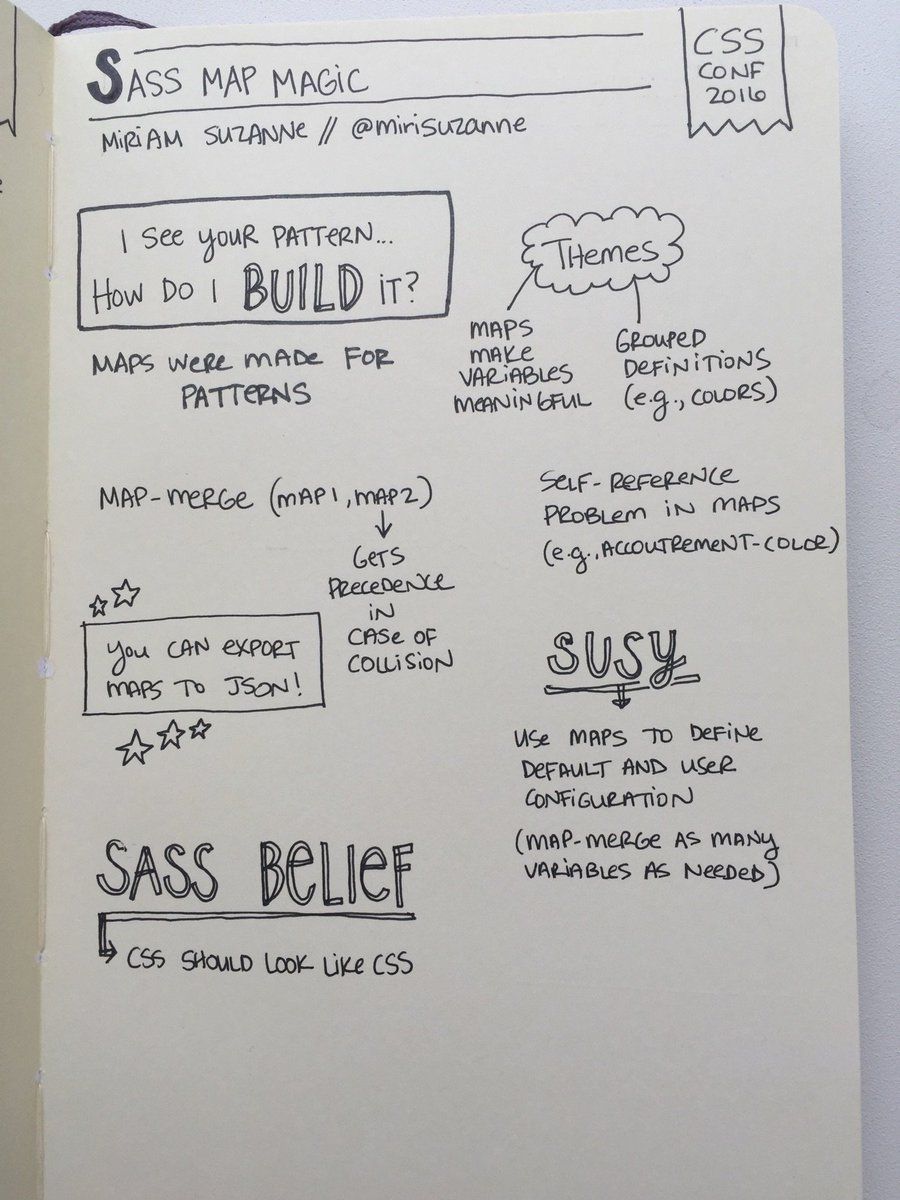 SASS MAP MAGIC
MIRIAM SUZANNE // @mirisuzanne
CSS
CONF
2016
I SEE YOUR PATTERN...
HOW DO I BUILD IT?
MAPS WERE MADE FOR
PATTERNS
THEMES
MAPS
MAKE
VARIABLES
MEANINGFUL
GROUPED
DEFINITIONS
(e.g., COLORS)
MAP-MERGE (MAP1, MAP2)
GETS
PRECEDENCE
IN
CASE OF
COLLISION
SELF-REFERENCE
PROBLEM IN MAPS
(e.g., ACCOUTREMENT-COLOR)
YOU CAN EXPORT
MAPS TO JSON!
SUSY
USE MAPS TO DEFINE
DEFAULT AND USER
CONFIGURATION
(MAP-MERGE AS MANY
VARIABLES AS NEEDED)
SASS BELIEF
CSS SHOULD LOOK LIKE CSS